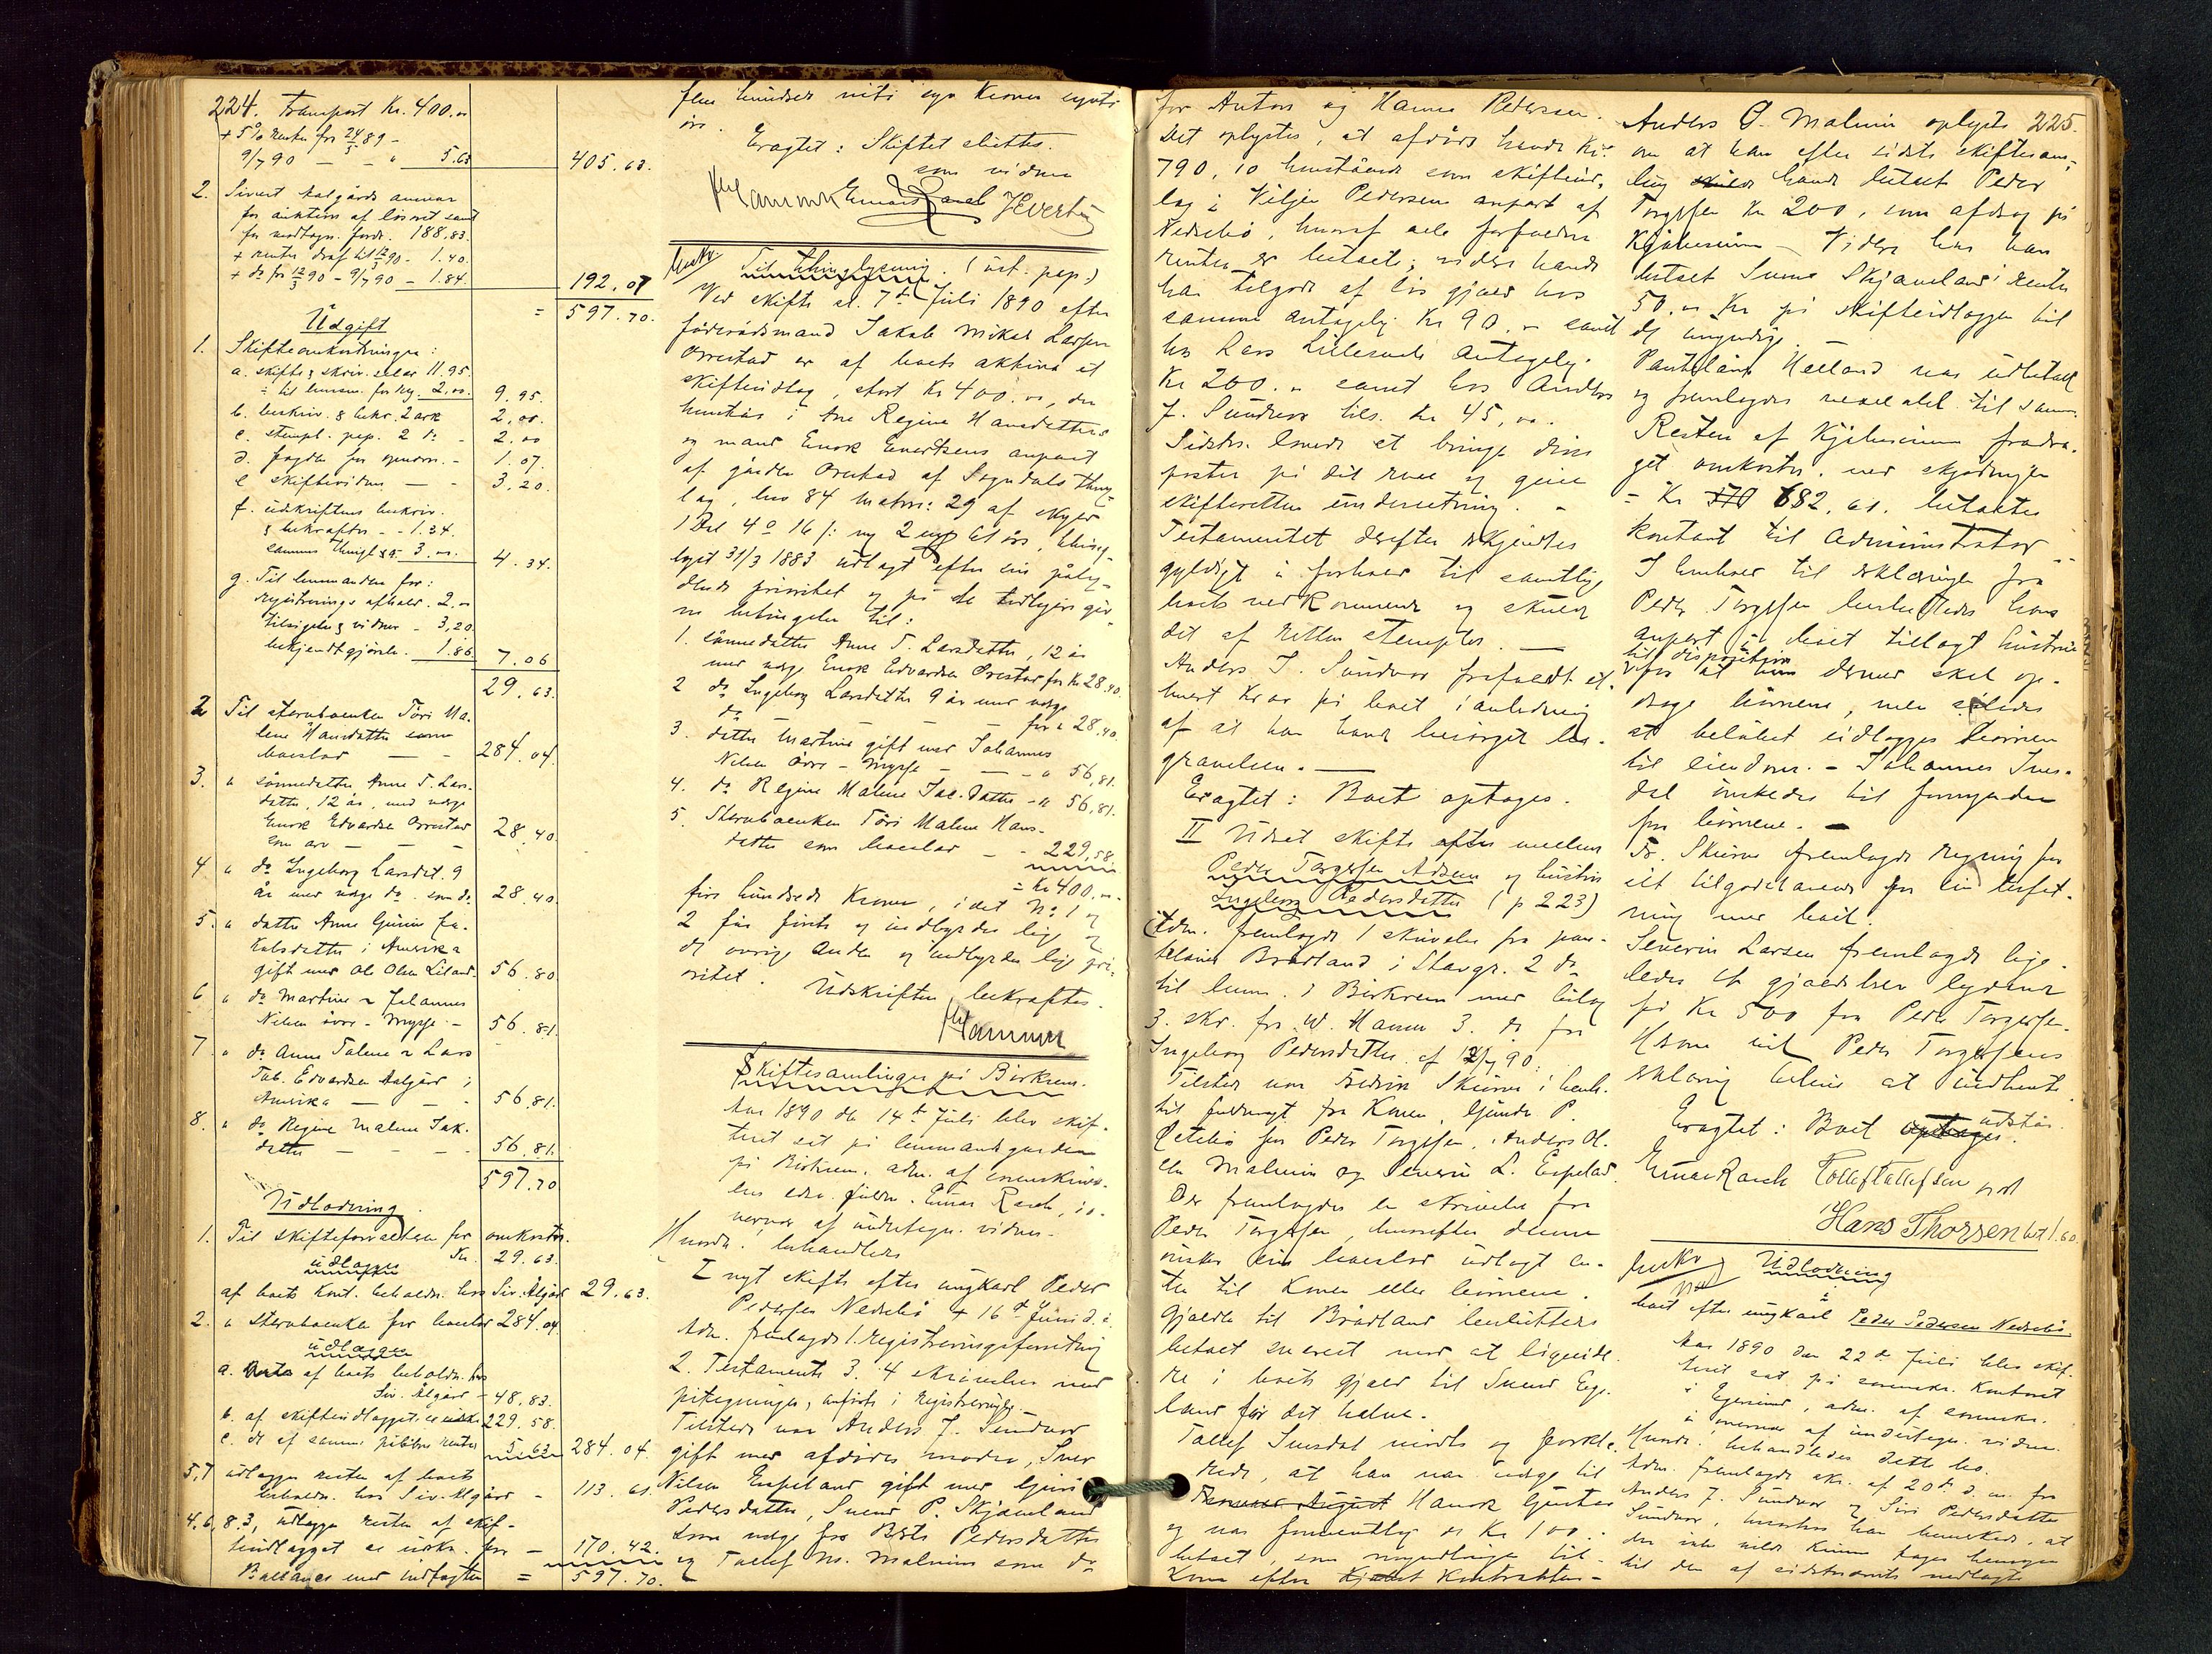 224. Transport Kr. 400.„
+ 5% renter fra 24/5 89 –
9/7 90 — - „ 5.63 405.63.
2. Sivert Aalgårds ansvar
for auktion af løsøret samt
for modtagn. fordr. 188.83.
+ renter deraf til 12/3 90 - 1.40.
+ do fra 12/3 90 - 9/7 90 - 1.84. 192.07
= 597.70.
Udgift
1. Skifteomkostninger:
a. skifte & skriv. salær 11.95.
÷ til lensm. for reg. 2.00. 9.95.
b. beskriv. & bekr. 2 ark 2.00.
c. stempl. pap. 2 do - 2.00
d. fragten for opnævn. - 1.07.
e skiftevidner — - 3.20.
f. udskriftens beskriv.
& bekræftn. - - 1.34.
sammes thingl. 3.00. 4.34.
g. Til lensmanden for:
registrerings afhold. 2.00
tilsigelse & vidner - 3,20.
bekjendtgjørelse. 1.86 7.06
29.63.
2 Til sterboenken Tøri Ma-
lene Hansdatter som
boeslod — - 284.04.
3. „ sønnedatter Anne T. Lars-
datter, 12 år, med værge
Enok Edvardsen Orrestad
som arv — — - 28,40.
4 „ do Ingeborg Larsdat. 9
år med værge do. som do 28.40.
5. „ datter Anne Gurine Ja-
kobsdatter i Amerika
gift med Ole Olsen Liland 56.80
6 „ do Martine ~ Johannes
Nilsen øvre - Mysse - 56.81.
7 „ do Anne Taline ~ Lars
Tob. Edvardsen Aalgård i
Amerika — — - 56.81.
8. „ do Regine Malene Jak.
datter — — - 56.81.
597.70
Udlodning.
1. Til skifteforvalteren for omkostn.
Kr. 29.63.
udlægges
af boets kont. beholdn. hos Siv. Algård 29.63.
2. „ Sterboenken for boeslod 284.04
udlægges
a. Resto af boets beholdn. hos
Siv. Algård - 48.83.
b. af skifteudlægget 229.58.
c. do af samme påløbne renter 5.63 284.04.
5,7 udlægges resten af boets
beholdn. hos Siv. Algård - 113.61.
4.6.8.3, udlægges resten af skif-
teudlægget for - 170.42.
Ballance med indtægten = 597.70.
fem hundrede niti syv Kroner sytti
øre.
Eragtet: Skiftet sluttes.
som vidner
Hammer Einar Rasch J Evertsen
Til thinglysning. (ust. pap.)
Ved skifte af 7de Juli 1890 efter
føderådsmand Jakob Mikal Larsen
Orrestad er af boets aktiva et
skifteudlæg, stort Kr 400.00, der
henstår i Ane Regine Hansdatters
og mand Enok Enertsens anpart
af gården Orrestad af Sogndals thing-
lag, hno 84 matno: 29 af skyld
1 Dal. 4 o 16 /: ny 2 61 øre, thing-
lyst 31/3 1883 udlagt efter sin påly-
dende prioritet og på de tidligere giv-
ne betingelser til:
1. sønnedatter Anne T. Larsdatter, 12 år
med værge Enok Edvardsen Orrestad for Kr 28.40.
2 do Ingeborg Larsdatter 9 år med værge
do — — — for „ 28,40.
3. datter Martine gift med Johannes
Nilsen øvre - Mysse — — - „ 56,81.
4. do Regine Malene Jac. datter - „ 56,81.
5. Sterboenken Tøri Malene Hans-
datter som boeslod — - 229,58.
= Kr 400.„.
fire hundrede Kroner, i det No: 1 og
2 får første og indbyrdes lige og
de øvrige anden og indbyrdes lige pri-
oritet. Udskriften bekræftes.
Hammer
Skiftesamlinger på Birkrem.
Aar 1890 den 14de Juli blev skif-
teret sat på lensmandsgården
på Birkrem. adm. af sorenskrive-
rens edsv. fuldm. Einar Rasch, i o-
vervær af undertegn. vidner.
Hvorda. behandledes
I nyt skifte efter ungkarl Peder
Pedersen Nedrebø + 16de Juni d.å.
Adm. fremlagde 1. registreringsforretning
2. Testamente 3. 4 skrivelser med
påtegninger, anført i registreringen. –
Tilstede var Anders J. Sundvor
gift med afdødes moder, Sven
Nilsen Espeland gift med Guri
Pedersdatter, Svend P. Skjæveland
som værge for Berte Pedersdatter
og Tallef M. Malmin som do
for Anton og Hanna Pedersen.
Det oplystes, at afdøde havde Kr.
790, 10 henstående som skifteud-
læg i Viljen Pedersens anpart af
Nedrebø, hvoraf alle forfaldne
renter er betalte; videre havde
han tilgode af løs gjæld hos
samme antagelig Kr 90.- samt
hos Lars Lillesunde antagelig
Kr 200.„ samt hos Anders
J. Sundvor tils. Kr 45,00.
Sidstn. lovede at bringe disse
poster på det rene og give
skifteretten underretning. -
Testamentet derefter erkjendtes
gyldigt i forhold til samtlige
boets vedkommende og skulde
det af retten stemples. —
Anders J. Sundvor frafaldt et-
hvert krav på boet i anledning
af at han havde besørget be-
gravelsen. —
Eragtet: Boet optages.
II Udsat skifte efter mellem
Peder Torgersen Adsen og hustru
Ingeborg Pedersdatter (p 223)
Adm. fremlagde 1 skrivelse fra pan-
telånet Brådland i Stavgr. 2 do
til lensm. i Birkrem med bilag
3. skr. fra W. Hansen 3. do fra
Ingeborg Pedersdatter af 12/7 90.
Tilstede var Fredrik Skiørn i henh.
til fuldmagt fra Konen, Gunder P.
Retebø for Peder Torgersen, Anders Ol-
sen Malmin og Severin L. Espeland.
Der fremlagdes en skrivelse fra
Peder Torgersen, hvorefter denne
ønsker sin boeslod udlagt en-
ten til Konen eller børnene.
Gjælden til Brådland besluttedes
betalt snarest med at liquide-
re i boets gjæld til Svend Ege-
land før det halve.
Tallef Ivesdal mødte og forkla-
rede, at han var værge til
Hanok Gustav
og var forventlig de Kr 100.-
betalt, som myndlinge til-
kom efter Kontrakten -
Anders O. Malmin oplyste 225.
om at han efter sidste skiftesam-
ling havde betalt Peder
Torgersen Kr 200, som afdrag på
Kjøbesum – Videre har han
betalt Svend Skjæveland i renter
50.„ Kr på skifteudlæggene til
de umyndige.
Pantelånet Helland var udbetalt
Resten af Kjøbesummen fradra-
get omkostn. ved skjødningen
= Kr 682.61. betaltes
kontant til Administrator -
I henhold til erklæringen fra
Peder Torgersen besluttedes hans
anpart i boet tillagt hustru
til disposition
for at hun dermed skal op-
drage børnene, men således
at beløbet udlægges børnene
til eiendom. – Johannes Ives-
dal ønskedes til formynder
for børnene. –
Fr. Skiørn fremlagde regning for
sit tilgodehavende for sin befat-
ning med boet.
Severin Larsen fremlagde lige-
ledes et gjældsbrev lydende
på Kr 500 fra Peder Torgersen.
Herom vil Peder Torgersens
erklæring blive at indhente
Eragtet: Boet optages udstår.
Einar Rasch Tollef Tollefsen
Hans Thorsen bet 1.60.
Udlodning
i
boet efter ungkarl Peder Pedersen Nedrebø
Aar 1890 den 22de Juli blev skif-
teret sat på sorenskr. Kontoret
i Egersund, adm. af sorenskr.
i overvær af undertegn. vidner.
Hvorda. behandledes dette bo.
Adm. fremlagde skr. af 20de d.m. fra
Anders J. Sundvor & Siri Pedersdatter
Sundvor, hvorhos han bemærkede, at
der ikke vilde kunne tages hensyn
til den af sidstnævnte nedlagte